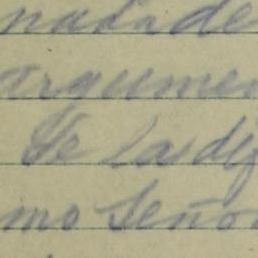 nada de
argumen
Se la di
mo Señor